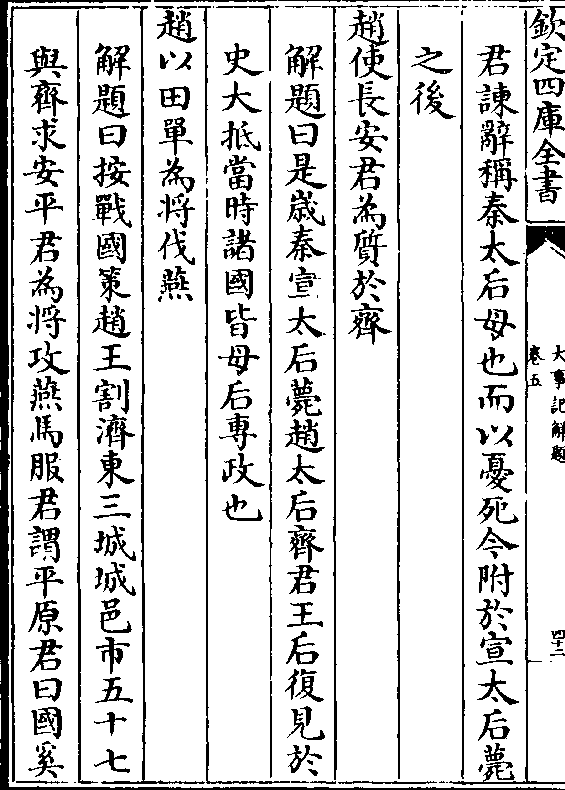 欽定四庫全書
大事記解題
卷五
四十二
君諫辭稱秦太后母也而以憂死今附於宣太后薨
之後
趙使長安君為質於齊
解題曰是歲秦宣太后薨趙太后齊君王后復見於
史大抵當時諸國皆母后專政也
趙以田單為將伐燕
解題曰按戰國策趙王割濟東三城城邑市五十七
與齊求安平君為將攻燕馬服君謂平原君曰國奚